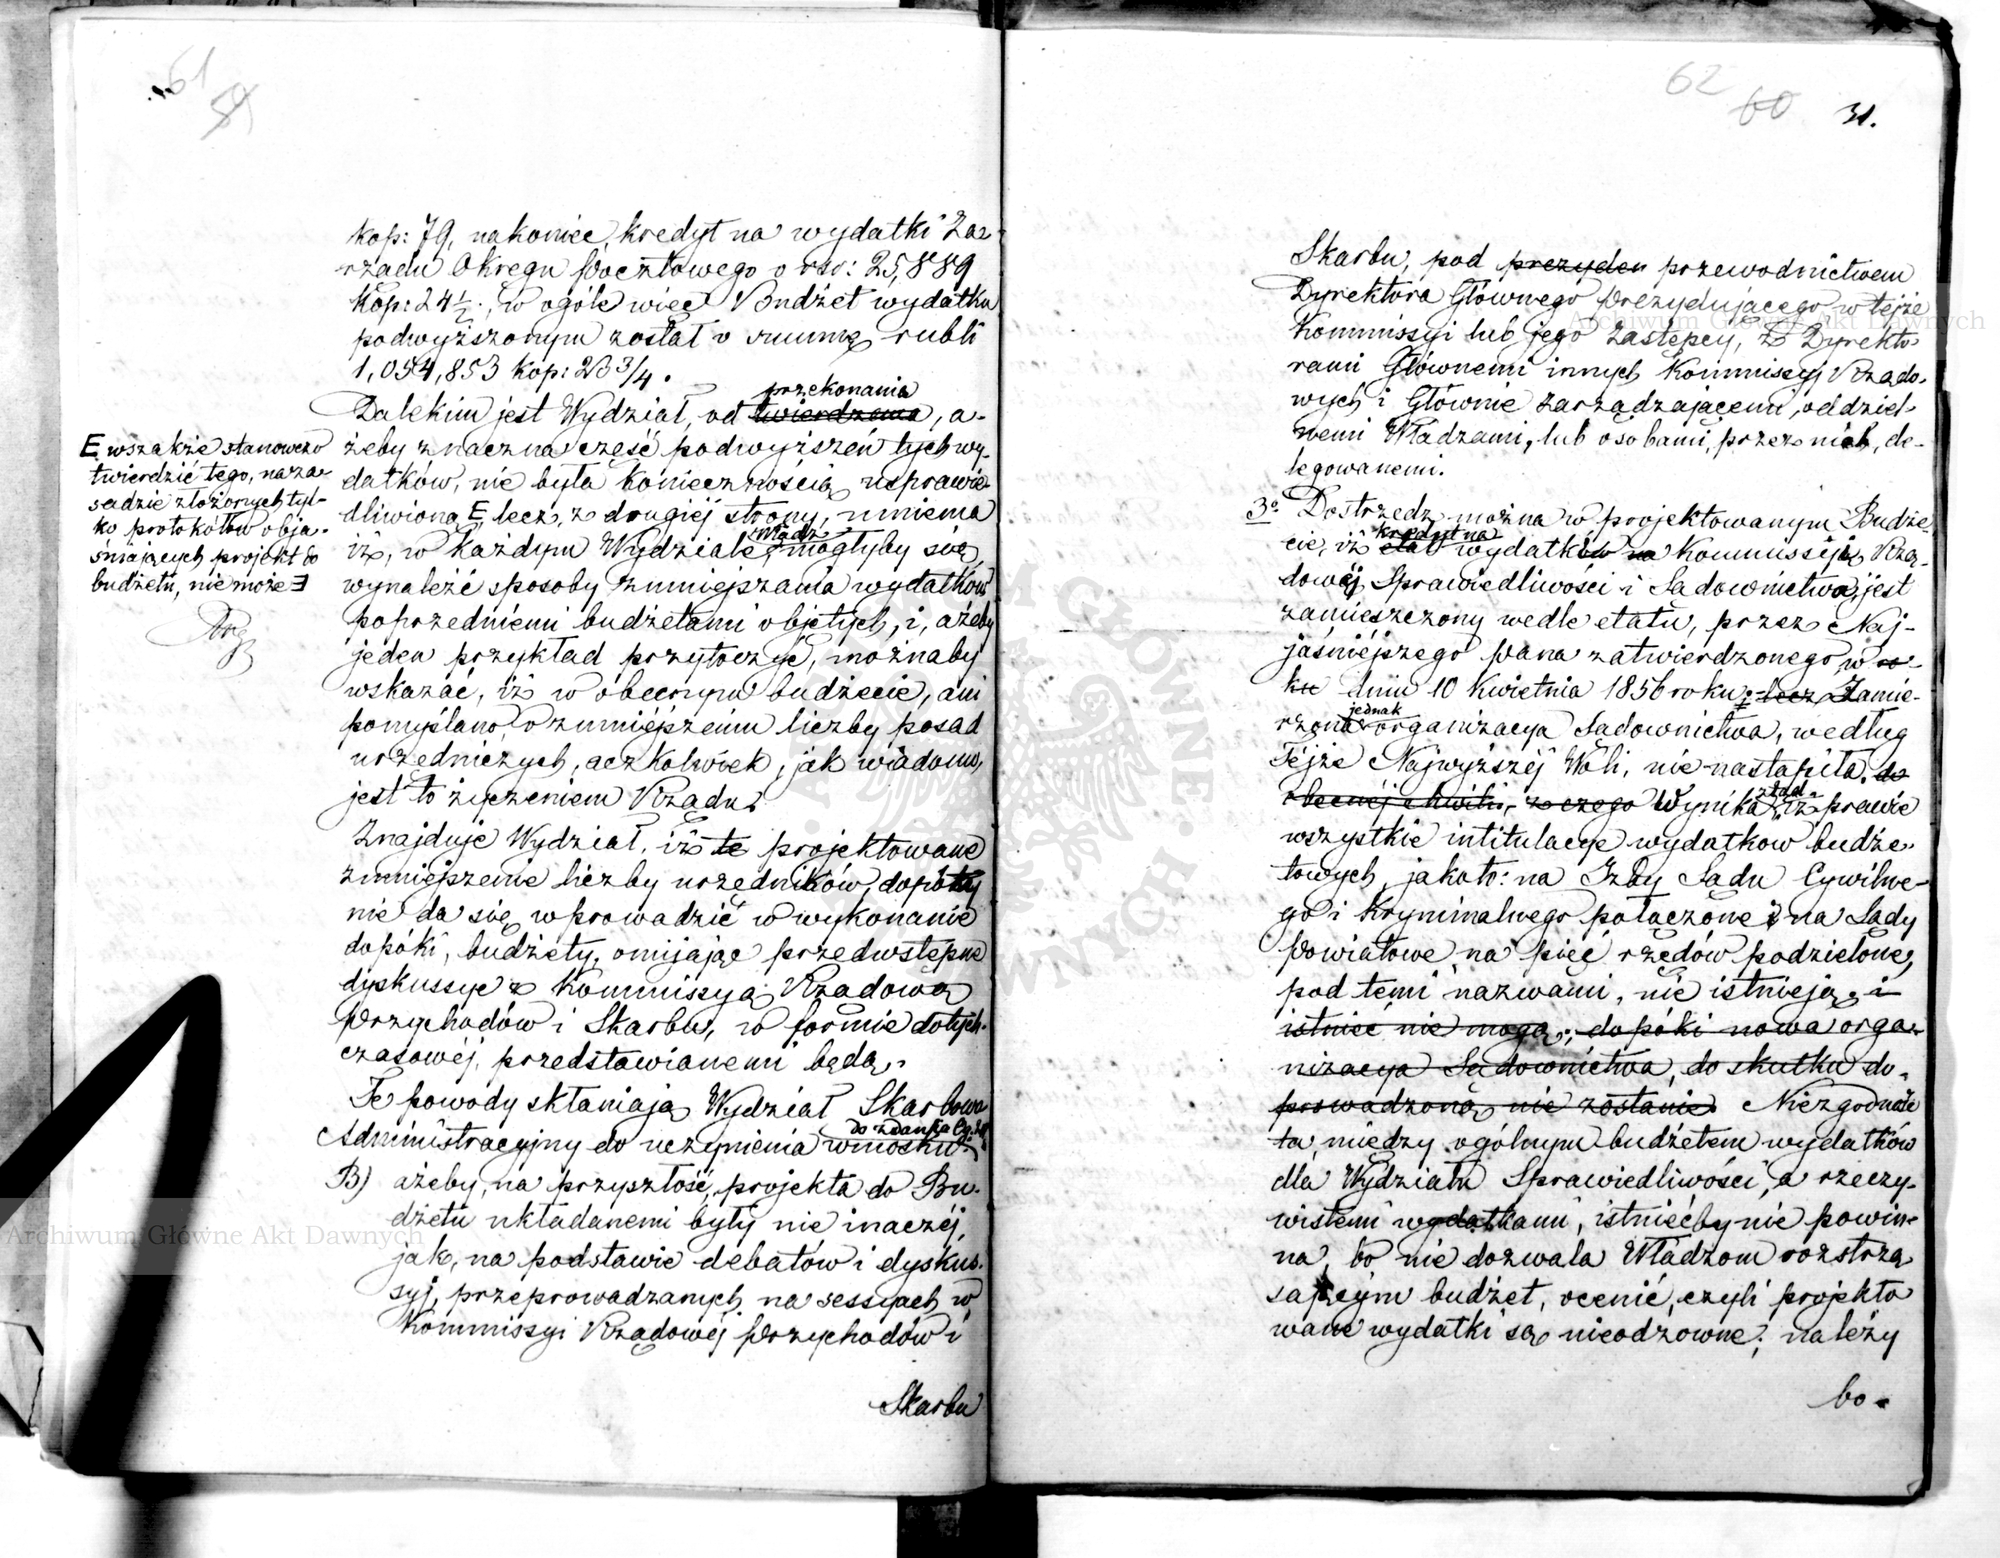 61
59
kop: 79, nakoniec, kredyt na wydatki Za-
rządu Okręgu Pocztowego o rsr: 25,889
kop: 24½; w ogóle więc Budżet wydatku
podwyższonym został o summę rubli
1,054,853 kop: 23 3/4.
przekonania
Dalekim jest Wydział, od twierdzenia, a-
żeby znaczna część podwyższeń tych wy-
datków, nie była koniecznością usprawie-
dliwioną E, lecz, z drugiej strony, mniema
Władz
iż, w każdym Wydziale, mogłyby się
wynaleźć sposoby zmniejszania wydatków
poprzedniemi budżetami objętych, i, ażeby
jeden przykład przytoczyć, możnaby
wskazać, iż w obecnym budżecie, ani
pomyślano, o zmniejszeniu liczby posad
urzędniczych, aczkolwiek, jak wiadomo,
jest to życzeniem Rządu.
Znajduje Wydział, iż te projektowane
zmniejszenie liczby urzędników, dopóty
nie da się wprowadzić w wykonanie
dopóki, budżety, omijając przedwstępne
dyskussye z Kommissyą Rządową
Przychodów i Skarbu, w formie dotych-
czasowéj, przedstawianemi będą.
Te powody skłaniają Wydział Skarbowo
do zdania
Administracyjny do uczynienia wniosku:
B) ażeby, na przyszłość, projekta do Bu-
dżetu układanemi były nie inaczéj,
jak, na podstawie debatów i dyskus-
syj, przeprowadzanych na sessyach w
Kommissyi Rządowéj Przychodów i
Skarbu
E wszakże stanowczo
twierdzić tego, na za-
sadzie złożonych tyl-
ko protokółów obja-
śniających projekt do
budżetu, nie może Ǝ
62
60
31.
Skarbu, pod prezyden przewodnictwem
Dyrektora Głównego Prezydującego w tejże
Kommissyi lub jego Zastępcy, z Dyrekto-
rami Głównemi innych Kommissyj Rządo-
wych i Głównie zarządzającemi, oddziel-
nemi Władzami, lub osobami, przez nich, de-
legowanemi.
3o Dostrzedz można w projektowanym Budże-
kredyt na
cie, iż etat wydatków na Kommissyi Rzą-
dowéj Sprawiedliwości i Sądownictwa, jest
zamieszczony wedle etatu, przez Naj-
jaśniejszego Pana zatwierdzonego, w ro-
ku dniu 10 Kwietnia 1856 roku; lecz Zamie-
jednak
rzona organizacya Sądownictwa, według
Téjże Najwyższéj Woli, nie nastąpiła. do
ztąd
obecnéj chwili, z czego Wynika, iż prawie
wszystkie intitulacye wydatkow budże-
towych, jakoto: na Izby Sądu Cywilne-
go i Kryminalnego połączone i na Sądy
Powiatowe na pięć rzędów podzielone,
pod temi nazwami, nie istnieją, i
istnieć nie mogą, dopóki nowa orga-
nizacya Sądownictwa, do skutku do-
prowadzoną nie zostanie. Niezgodność
ta, między ogólnym budżetem wydatków
dla Wydziału Sprawiedliwości, a rzeczy-
wistemi wydatkami, istniećby nie powin-
na, bo nie dozwala Władzom roztrzą
sającym budżet, ocenić, czyli projekto
wane wydatki są nieodzowne; należy
bo-
Archiwum Główne Akt Dawnych
Archiwum Główne Akt Dawnych